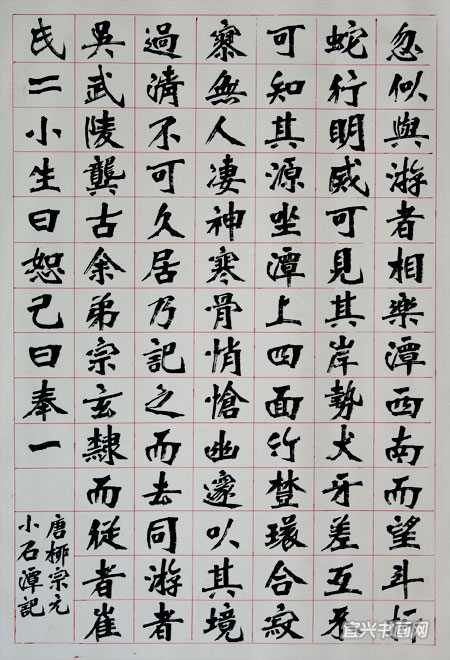 忽似與游者相樂潭西南而望斗折
蛇行明威可見其岸勢犬牙差互不
可知其源坐潭上四面竹樹環合寂
寥無人凄神寒骨悄愴幽邃以其境
過清不可久居乃記之而去同游者
吳武陵龔古余弟宗玄隸而從者崔
氏二小生曰恕己曰奉一
唐柳宗元
小石潭記
宜兴书画网